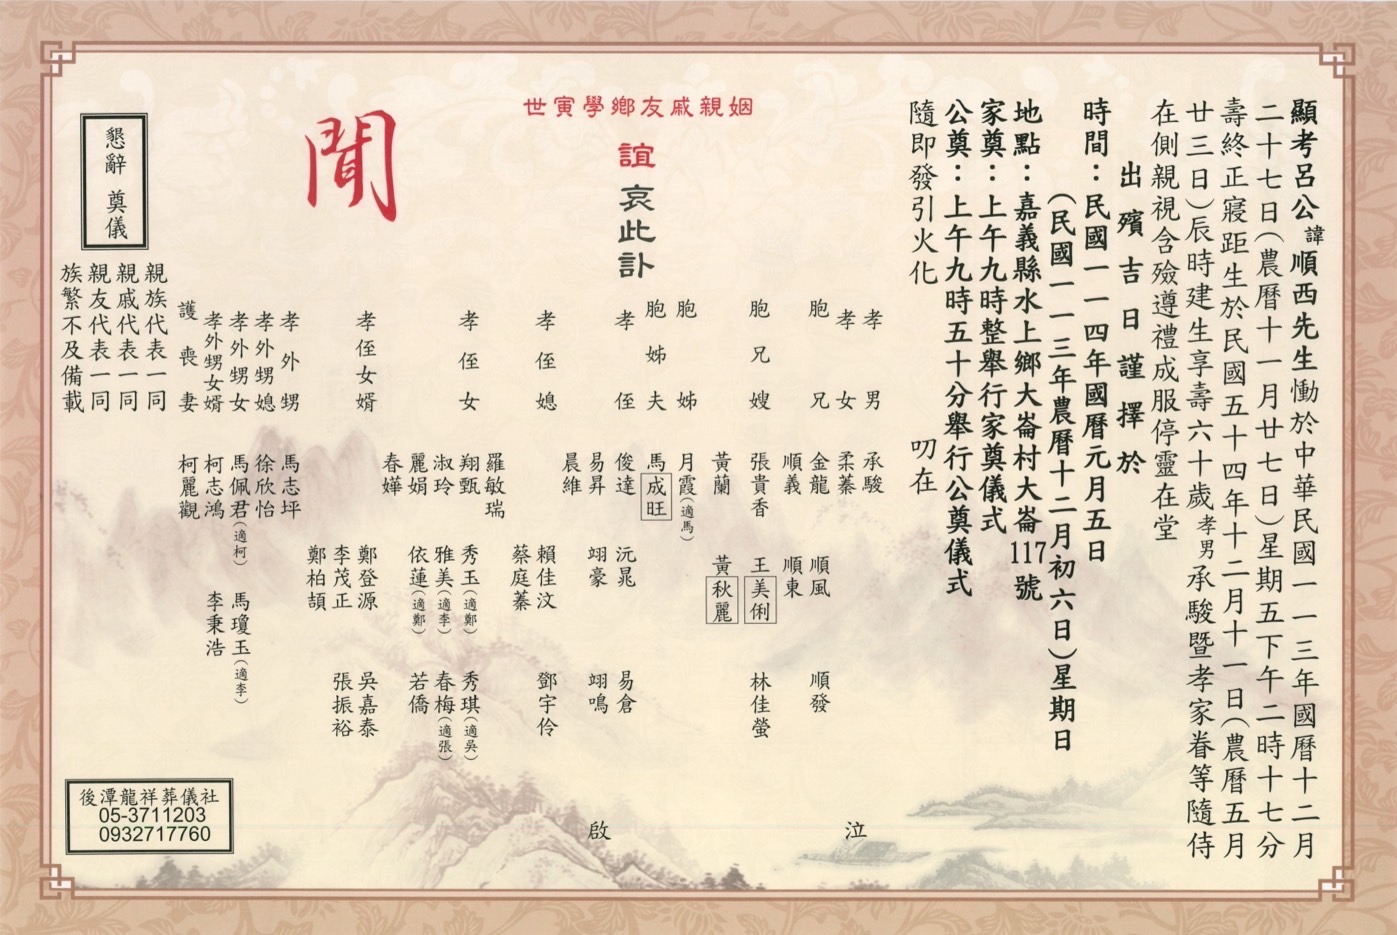 顯考呂公諱順西先生慟於中華民國一一三年國曆十二月
二十七日(農曆十一月廿七日)星期五下午二時十七分
壽終正寢距生於民國五十四年十二月十一日(農曆五月
廿三日)辰時建生享壽六十歲孝男承駿暨孝家眷等隨侍
在側親視含殮遵禮成服停靈在堂
出殯吉日謹擇於
時間：民國一一四年國曆元月五日
(民國一一三年農曆十二月初六日)星期日
地點：嘉義縣水上鄉大崙村大崙117號
家奠：上午九時整舉行家奠儀式
公奠：上午九時五十分舉行公奠儀式
隨即發引火化 叨在
孝男 承駿 泣
孝女 柔蓁
胞兄 金龍 順風 順發
順義 順東
胞兄嫂 張貴香 王美俐 林佳螢
黃蘭 黃秋麗
胞姊 月霞(適馬)
胞姊夫 馬成旺
孝侄 俊達 沅晁 易倉
易昇 翊豪 翊鳴 啟
晨維
孝侄媳 賴佳汶 鄧宇伶
蔡庭蓁
羅敏瑞
孝侄女 翔甄 秀玉(適鄭) 秀琪(適吳)
淑玲 雅美(適李) 春梅(適張)
麗娟 依蓮(適鄭) 若僑
春嬅
孝侄女婿 鄭登源 吳嘉泰
李茂正 張振裕
鄭柏頡
孝外甥 馬志坪
孝外甥媳 徐欣怡
孝外甥女 馬佩君(適柯) 馬瓊玉(適李)
孝外甥女婿 柯志鴻 李秉浩
護喪妻 柯麗觀
親族代表一同
親戚代表一同
親友代表一同
族繁不及備載
世寅學鄉友戚親姻
誼哀此訃
聞
懇辭 奠儀
後潭龍祥葬儀社
05-3711203
0932717760